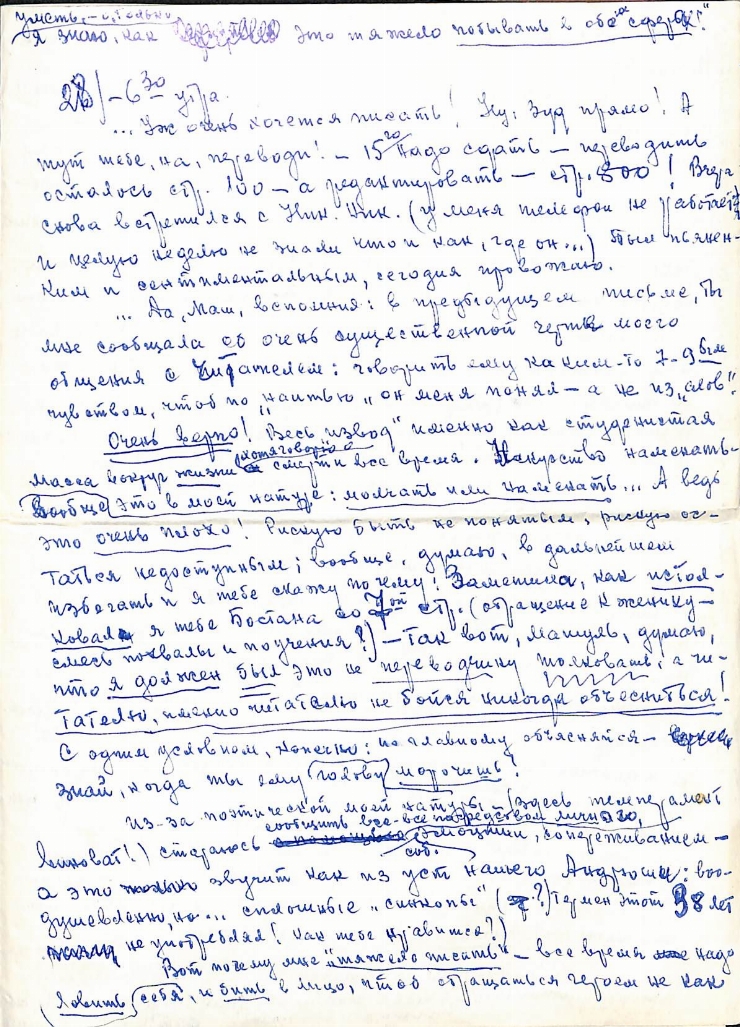 уместь, — и, только
я знаю, как это тяжело побывать в обеих сферах!"
28/ – 6 30 утра.
... Уж очень хочется писать! Ну: зуд прямо! А
тут тебе, на, переводи! – 15го надо сдать – переводить
осталось стр. 100 – а редактировать – стр. 800! Вчера
снова встретился с Ник. Ник. (у меня телефон не работает
и целую неделю не знали что и как, где он...) Был пьянень-
ким и сентиментальным, сегодня провожаю.
... Да, Маш, вспомнил: в предыдущем письме, ты
мне сообщала об очень существенной черте моего
общения с читателем: говорить ему каким-то 7–9
чувством, чтоб по наитью "он меня понял – а не из "слов".
Очень верно! Весь "извод" именно как студенистая
масса вокруг жизни и смерти все время. Искусство намекать.
Вообще это в моей натуре: молчать или намекать... А ведь
это очень плохо! Рискую быть не понятым, рискую ос-
таться недоступным; вообще, думаю, в дальнейшем
избегать и я тебе скажу почему! Заметила, как истол-
ковал я тебе Бостана со 7ой стр. (обращение к женику –
смесь похвалы и поучения?) – так вот, Машуль, думаю,
что я должен был это не переводчику толковать, а чи-
тателю, именно читателю не бойся никогда объесниться!
С одним условием, конечно: по главному объясняйся –
знай, когда ты ему голову морочишь!
Из-за поэтической моей натуры – (здесь темперамент
виноват!) стараюсь сообщить все-все посредством личного,
соб. эмоции, сопереживанием –
а это звучит как из уст нашего Андрюши: воо-
душевленно, но... сплошные "синкопы" (?) Термин этот 38 лет
не употреблял! Как тебе нравится?)
Вот почему мне "тяжело писать" – все время надо
ловить себя, и бить в лицо, чтоб обращаться героем не как